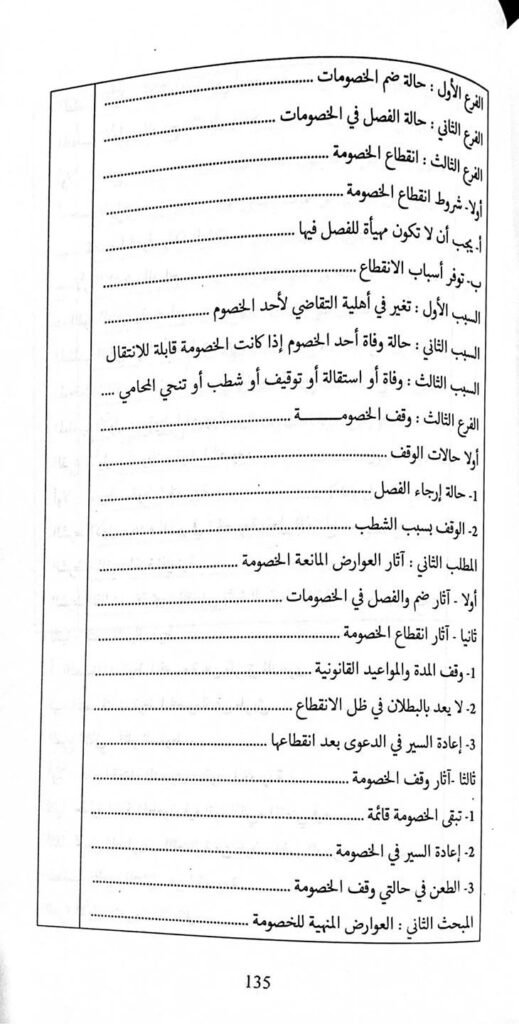 الفرع الأول : حالة ضم الخصومات ........................................
الفرع الثاني : حالة الفصل في الخصومات ........................................
الفرع الثالث : انقطاع الخصومة ........................................
أولا- شروط انقطاع الخصومة ........................................
أ- يجب أن لا تكون مهيأة للفصل فيها ........................................
ب- توفر أسباب الانقطاع ........................................
السبب الأول : تغير في أهلية التقاضي لأحد الخصوم ........................................
السبب الثاني : حالة وفاة أحد الخصوم إذا كانت الخصومة قابلة للانتقال
السبب الثالث : وفاة أو استقالة أو توقيف أو شطب أو تنحي المحامي ....
الفرع الثالث : وقف الخصومـــــــة ........................................
أولا حالات الوقف ........................................
1- حالة إرجاء الفصل ........................................
2- الوقف بسبب الشطب ........................................
المطلب الثاني : آثار العوارض المانعة الخصومة ........................................
أولا - آثار ضم والفصل في الخصومات ........................................
ثانيا - آثار انقطاع الخصومة ........................................
1- وقف المدة والمواعيد القانونية ........................................
2- لا يعد بالبطلان في ظل الانقطاع ........................................
3- إعادة السير في الدعوى بعد انقطاعها ........................................
ثالثا -آثار وقف الخصومة ........................................
1- تبقى الخصومة قائمة ........................................
2- إعادة السير في الخصومة ........................................
3- الطعن في حالتي وقف الخصومة ........................................
المبحث الثاني : العوارض المنهية للخصومة ........................................
135